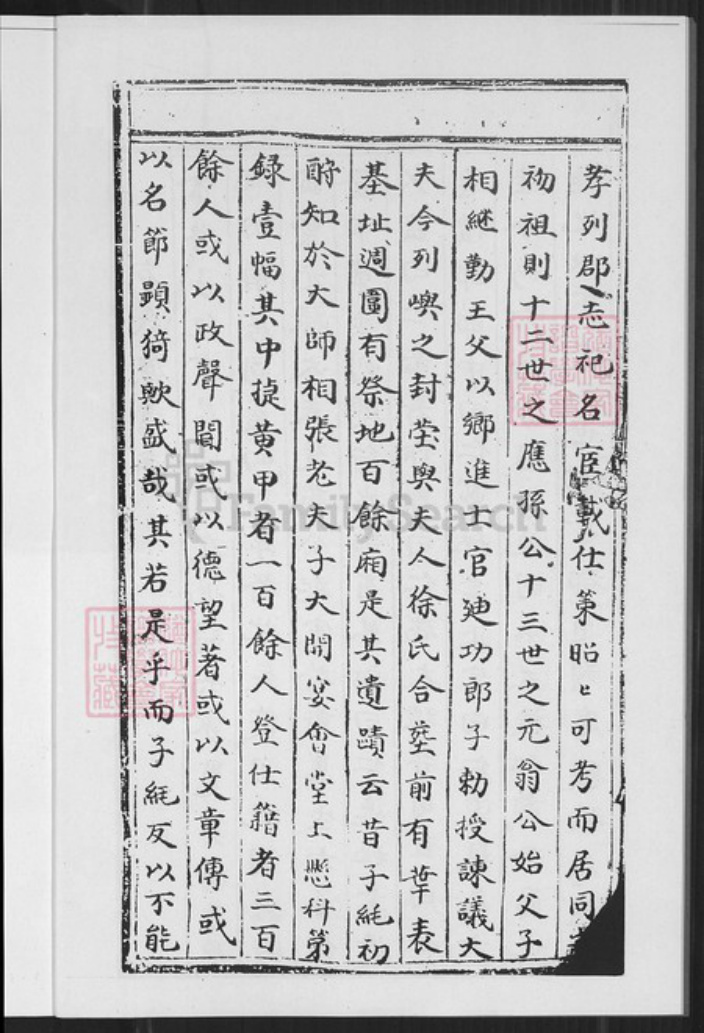 孝列郡志祀名宦載仕籍昭々可考而居同
初祖則十二世之應孫公十三世之元翁公始父子
相継勤王父以鄉進士官廸功郎子勅授諫議大
夫今列嶼之封塋與夫人徐氏合塟前有華表
基址週圍有祭地百餘廂是其遺蹟云昔子純初
酧知於大師相張老夫子大開宴會堂上懸科第
録壹幅其中㨗黃甲者一百餘人登仕籍者三百
餘人或以政聲聞或以德望著或以文章傳或
以名節顕猗歟盛哉其若是乎而子純反以不能
FamilySearch